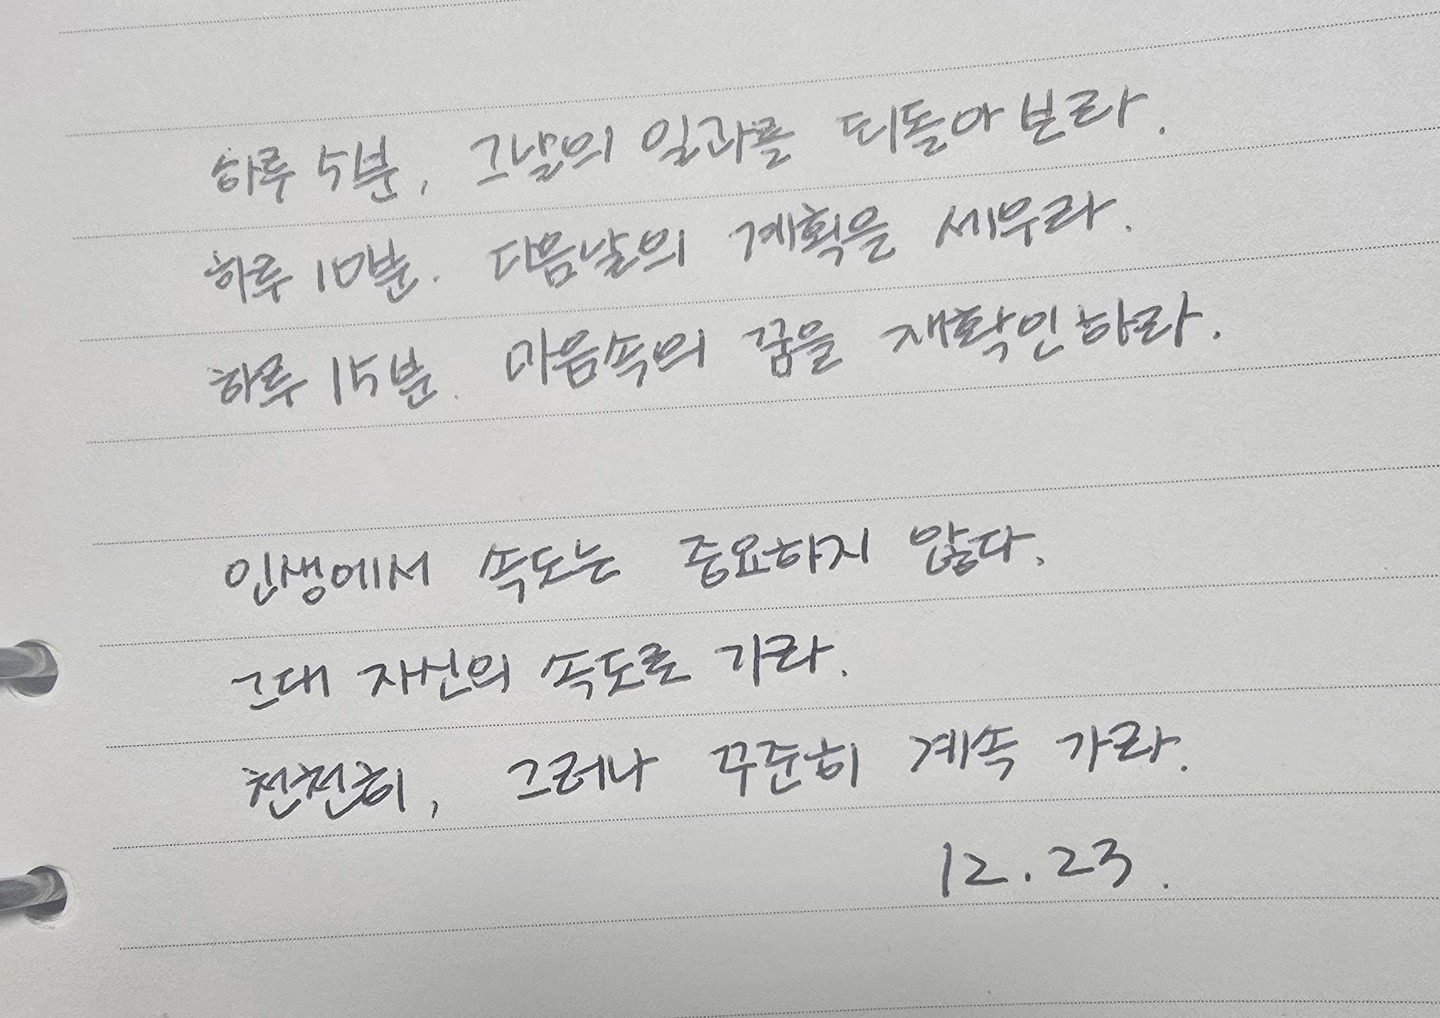 하루 5분, 그날의 일과를 되돌아보라.
하루 10분. 다음날의 계획을 세우라.
하루 15분. 마음속의 꿈을 재확인하라.
인생에서 속도는 중요하지 않다.
그대 자신의 속도로 가라.
천천히, 그러나 꾸준히 계속 가라.
12.23.